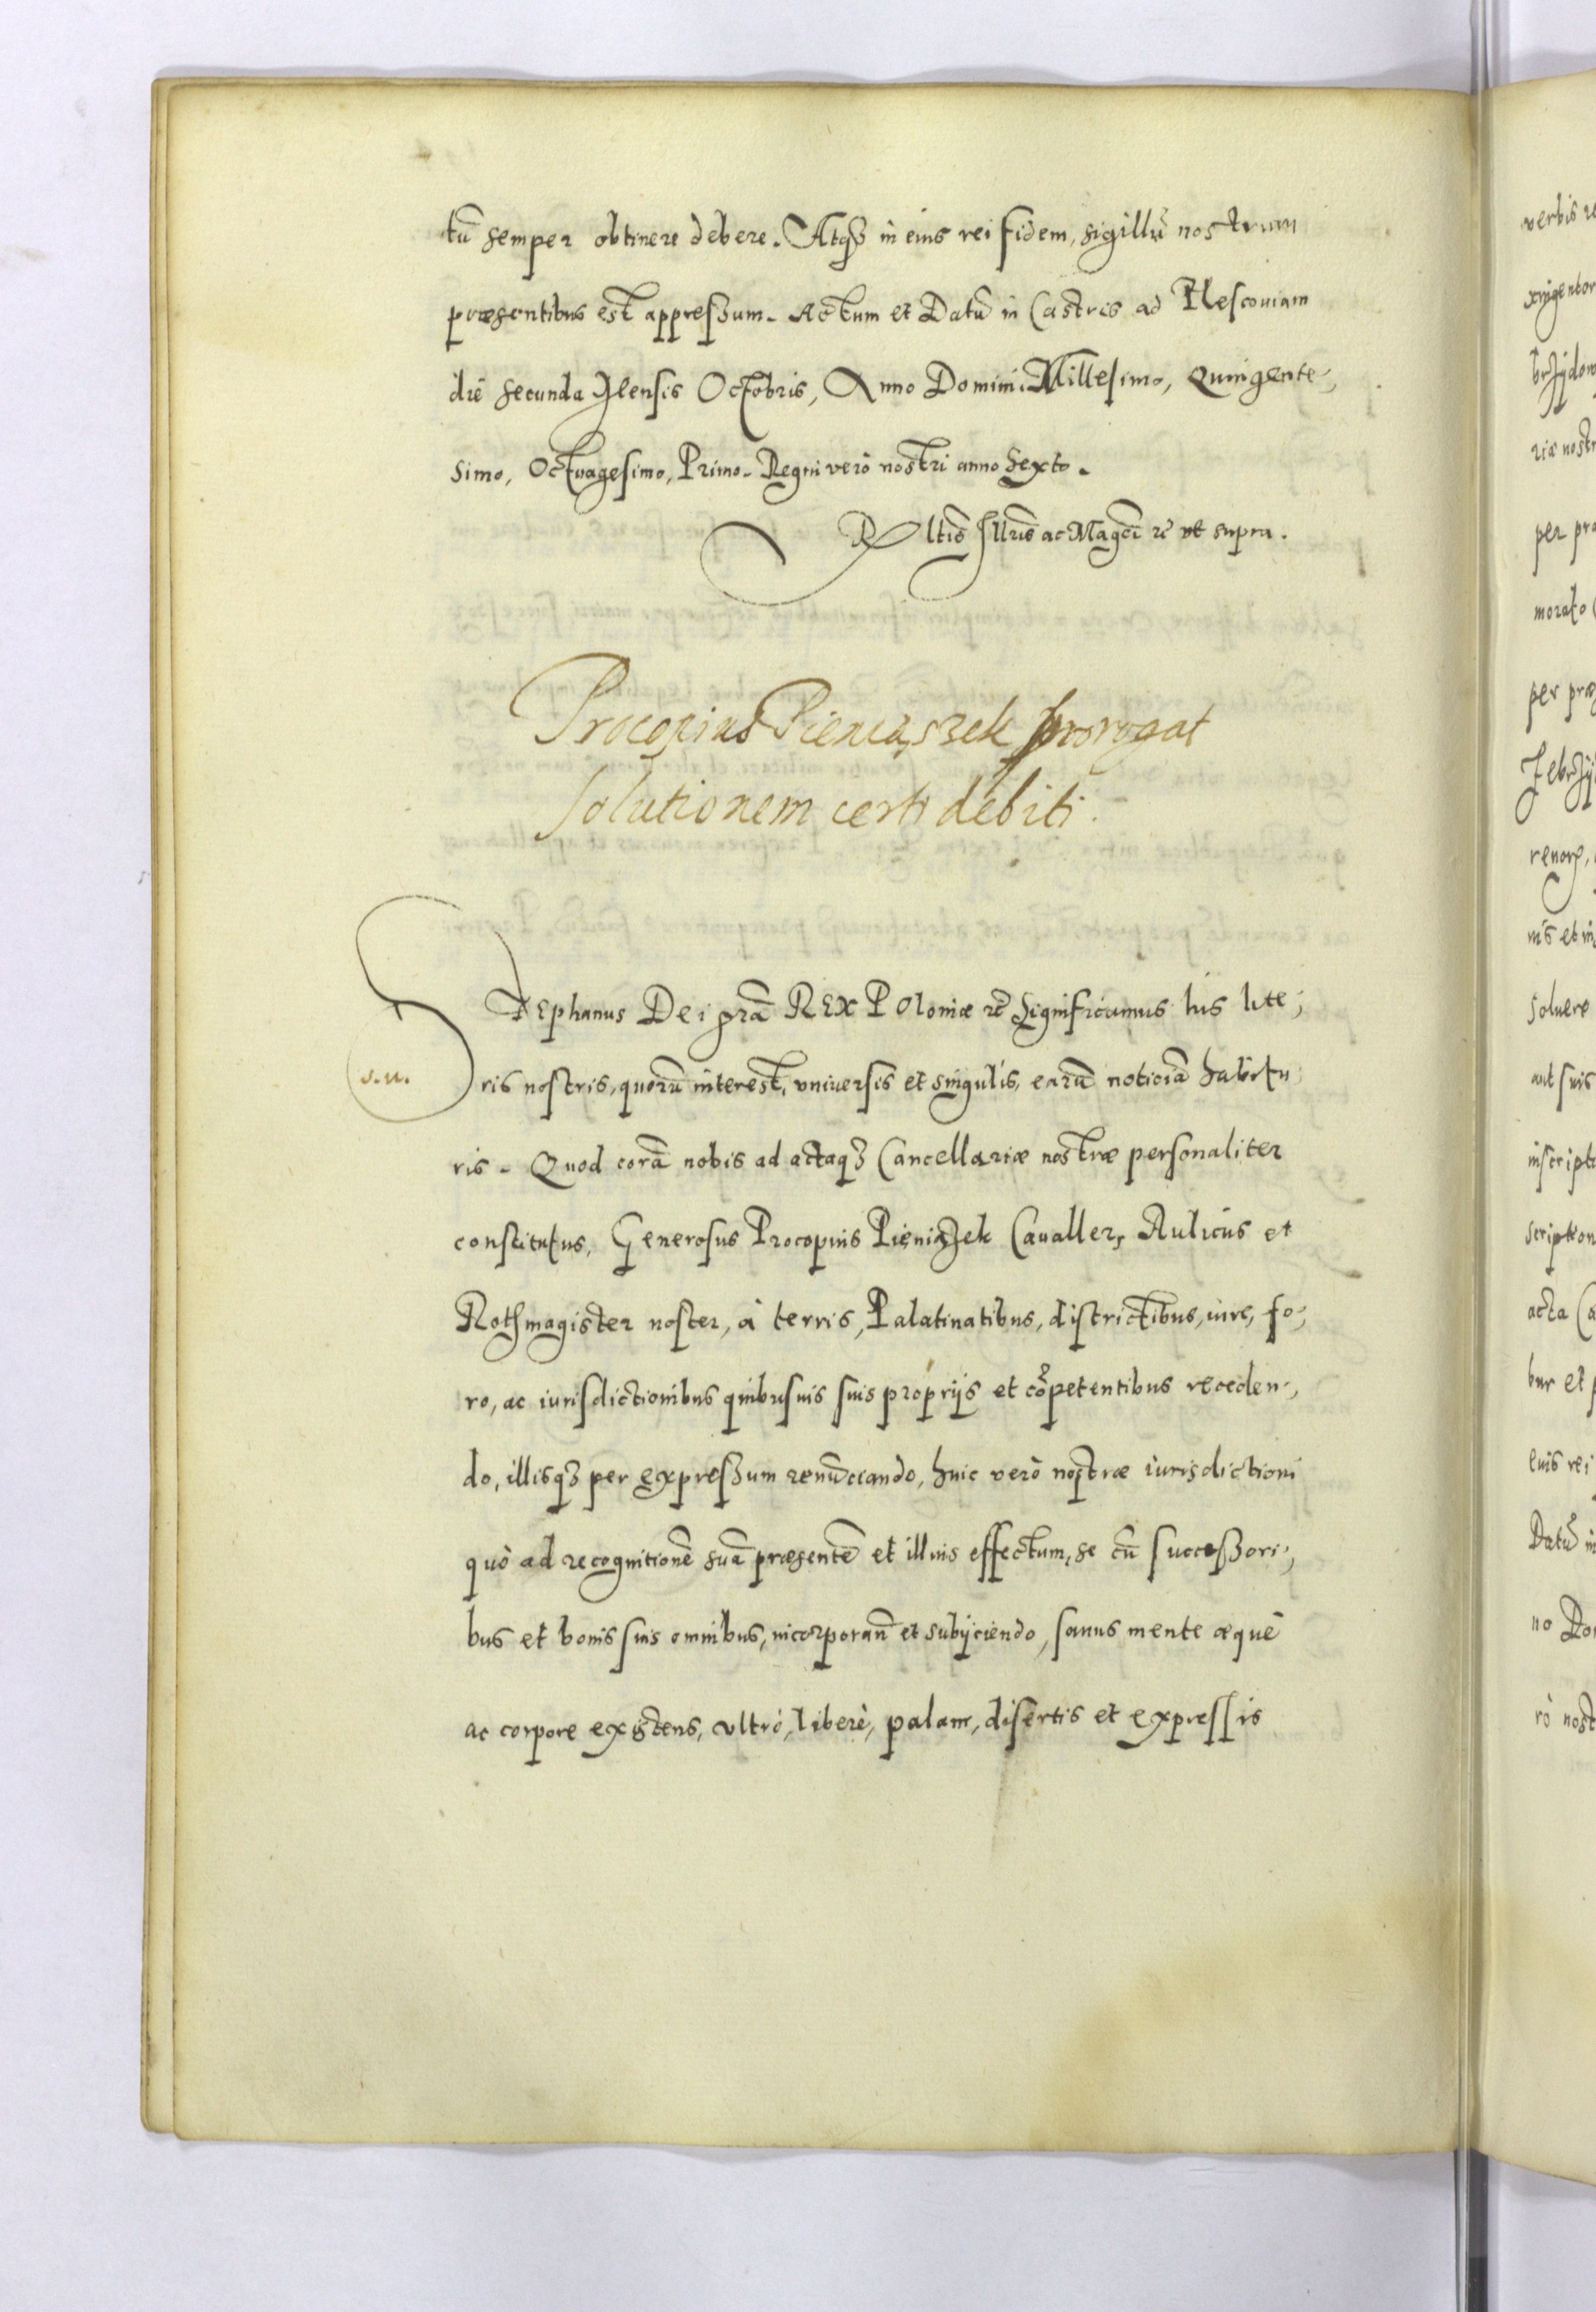 tū semper obtinere debere. Atqȝ in eius rei fidem, sigillū nostrum
præsentibus est appressum. Actum et Datū in Castris ad Plescouiam
die secunda Mensis Octobris, Anno Domini Millesimo, Quingente,
simo, Octuagesimo, Primo. Regni verò nostri anno Sexto.
Rltio Illris ac Magci rc̄ vt supra.
Procopius Pieniążek prorogat
solutionem certi debiti.
STEphanus Dei grā REX POloniæ rc̄ Significamus his litte,
s.u.
ris nostris, quorū interest, vniuersis et singulis, earū noticiā habitu
ris. Quod corā nobis ad actaqȝ Cancellariæ nostræ personaliter
constitutus, Generosus Procopius Pieniążek Caualler, Aulicus et
Rothmagister noster, à terris, Palatinatibus, districtibus, iure, fo,
ro, ac iurisdictionibus quibusuis suis proprijs et cōpetentibus receden,
do, illisqȝ per expressum renūciando, huic verò nostræ iurisdictioni
quò ad recognitionē suā præsentē et illius effectum, se cū successori,
bus et bonis suis omnibus, incorporan̄ et subijciendo, sanus mente æquè
ac corpore existens, vltrò, liberè, palam, disertis et expressis
verbis
per
morato
per
soluere
aut suis
acta
bur et
eius rei
Datū in